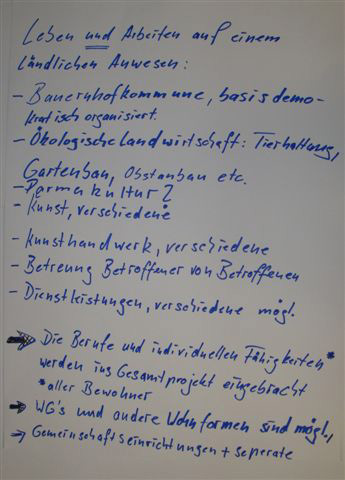 Leben und Arbeiten auf einem
ländlichen Anwesen:
- Bauernhofkommune, basisdemo-
kratisch organisiert.
- Ökologische Landwirtschaft: Tierhaltung,
Gartenbau, Obstanbau etc.
- Permakultur?
- Kunst, verschiedene
- Kunsthandwerk, verschiedene
- Betreuung Betroffener von Betroffenen
- Dienstleistungen, verschiedene mögl.
→ Die Berufe und individuellen Fähigkeiten*
werden ins Gesamtprojekt eingebracht
*aller Bewohner
→ WG's und andere Wohnformen sind mögl.,
→ Gemeinschaftseinrichtungen + seperate